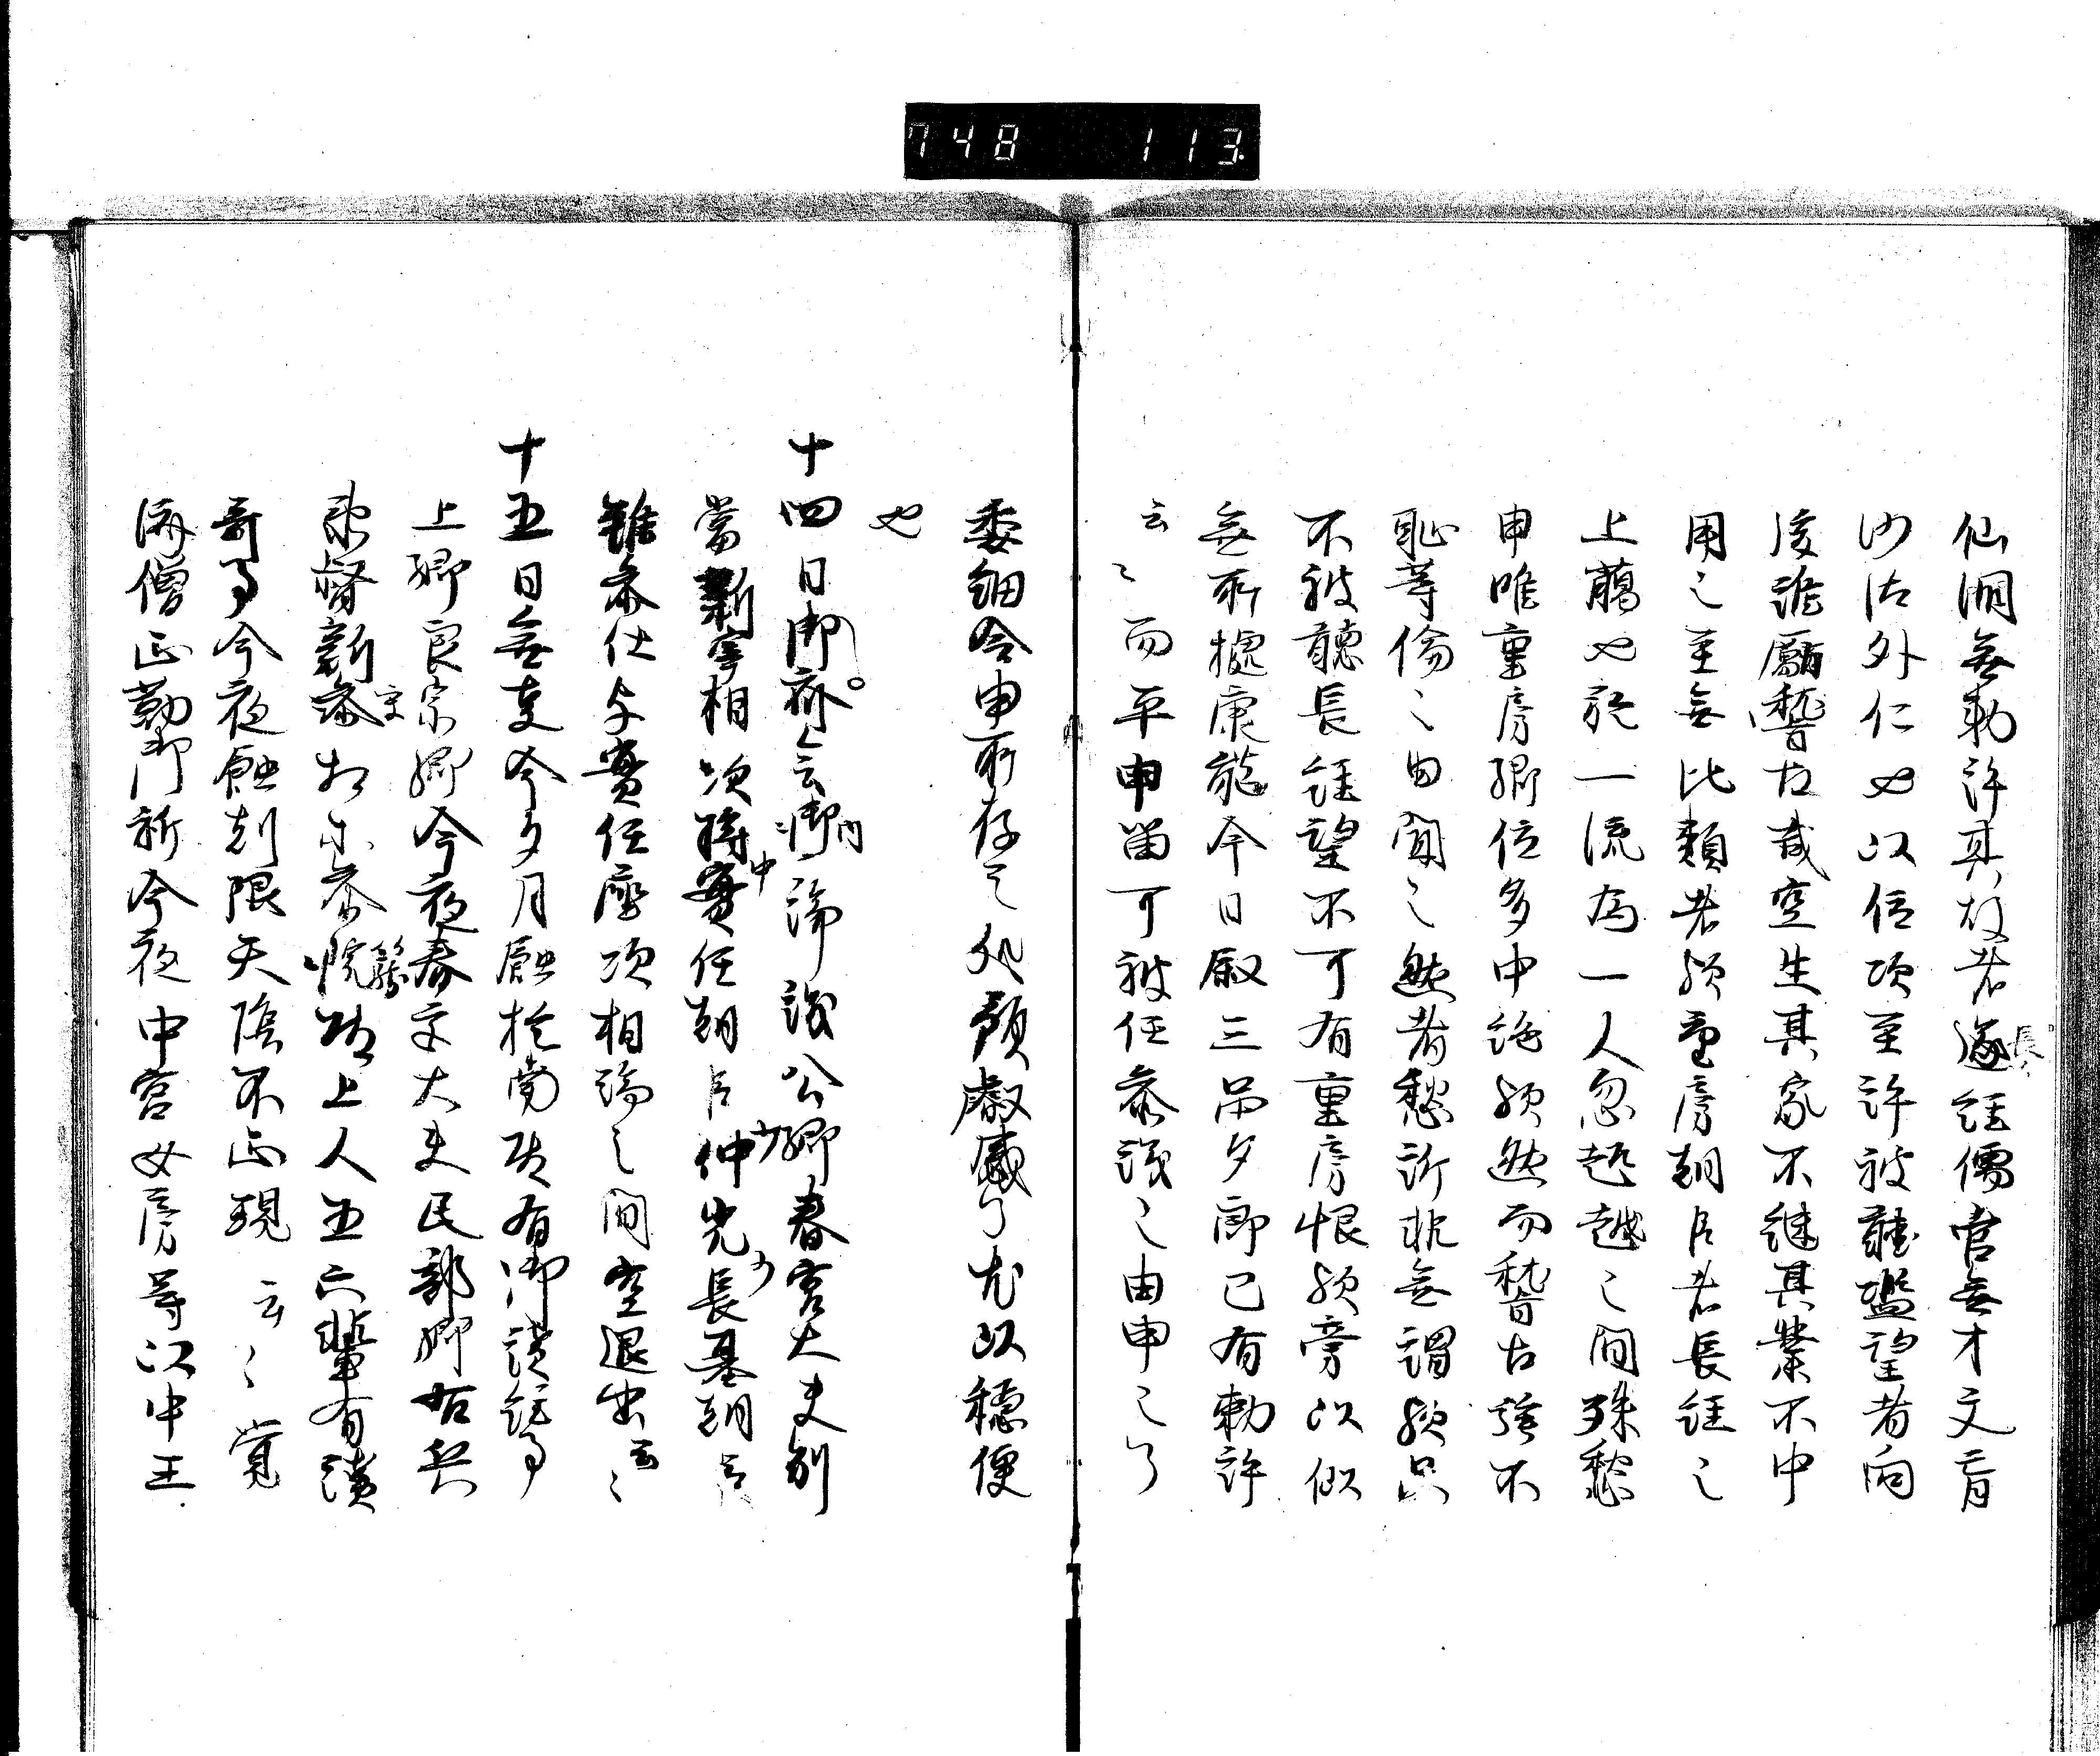 748 113
仙洞無勅許其故者遂長経儒官無才文盲
沙法外仁也以信次至許被聴濫望者向
後誰励稽古哉空生其家不継其業不中
用之至無比類者歟重房朝臣者長経之
上﨟也於一流為一人忽超越之間殊愁
申唯重房卿位多中絶歟然而稽古強不
恥等倫之由聞之然者愁訴非無謂歟只
不被聴長経望不可有重房恨歟旁以似
無所拠康能今日叙三品夕郎已有勅許
云々而平申留可被任参議之由申之了
委細令申所存之処預叡感了尤以穏便
也
十四日御斎会内論議公卿春宮大夫別
当新宰相次将実任朝臣仲光長基朝臣
雖参仕与実任座次相論之間空退出云々
十五日無事今夕月蝕於南殿有御読経事
上卿良宗卿今夜春宮大夫民部卿右兵
衛督新参 参院 殿上人五六輩有読
哥事今夜蝕刻限天陰不正現云々覚
済僧正勤御祈今夜中宮女房等以中王